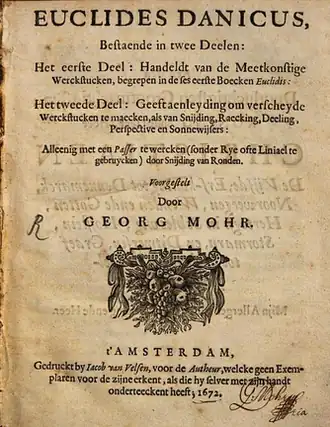 EUCLIDES DANICUS,
Bestaende in twee Deelen:
Het eerste Deel: Handelt van de Meetkonstige
Werckstucken, begrepen in de ses eerste Boecken Euclidis:
Het tweede Deel: Geeft aenleyding om verscheyde
Werckstucken te maecken, als van Snijding, Raecking, Deeling,
Perspective en Sonnewijsers:
Alleenig met een Passer te wercken (sonder Rye ofte Liniael te
gebruycken) door Snijding van Ronden.
Voorgestelt
Door
GEORG MOHR.
R
t'AMSTERDAM,
Gedruckt by Iacob van Velsen, voor de Autheur, welcke geen Exem-
plaren voor de zijne erkent, als die hy selver met zijn handt
onderteeckent heeft, 1672.